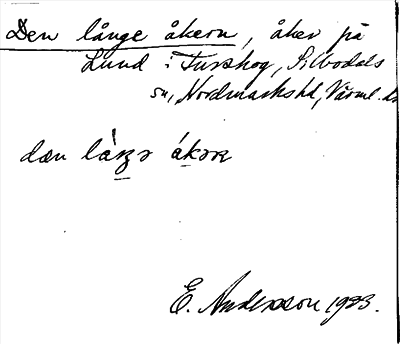 Den långe åkern, åker på
Lund i Turskog, Silbodals
sn, Nordmarkshd, Värml. l
dæn
E. Andersson 1923.